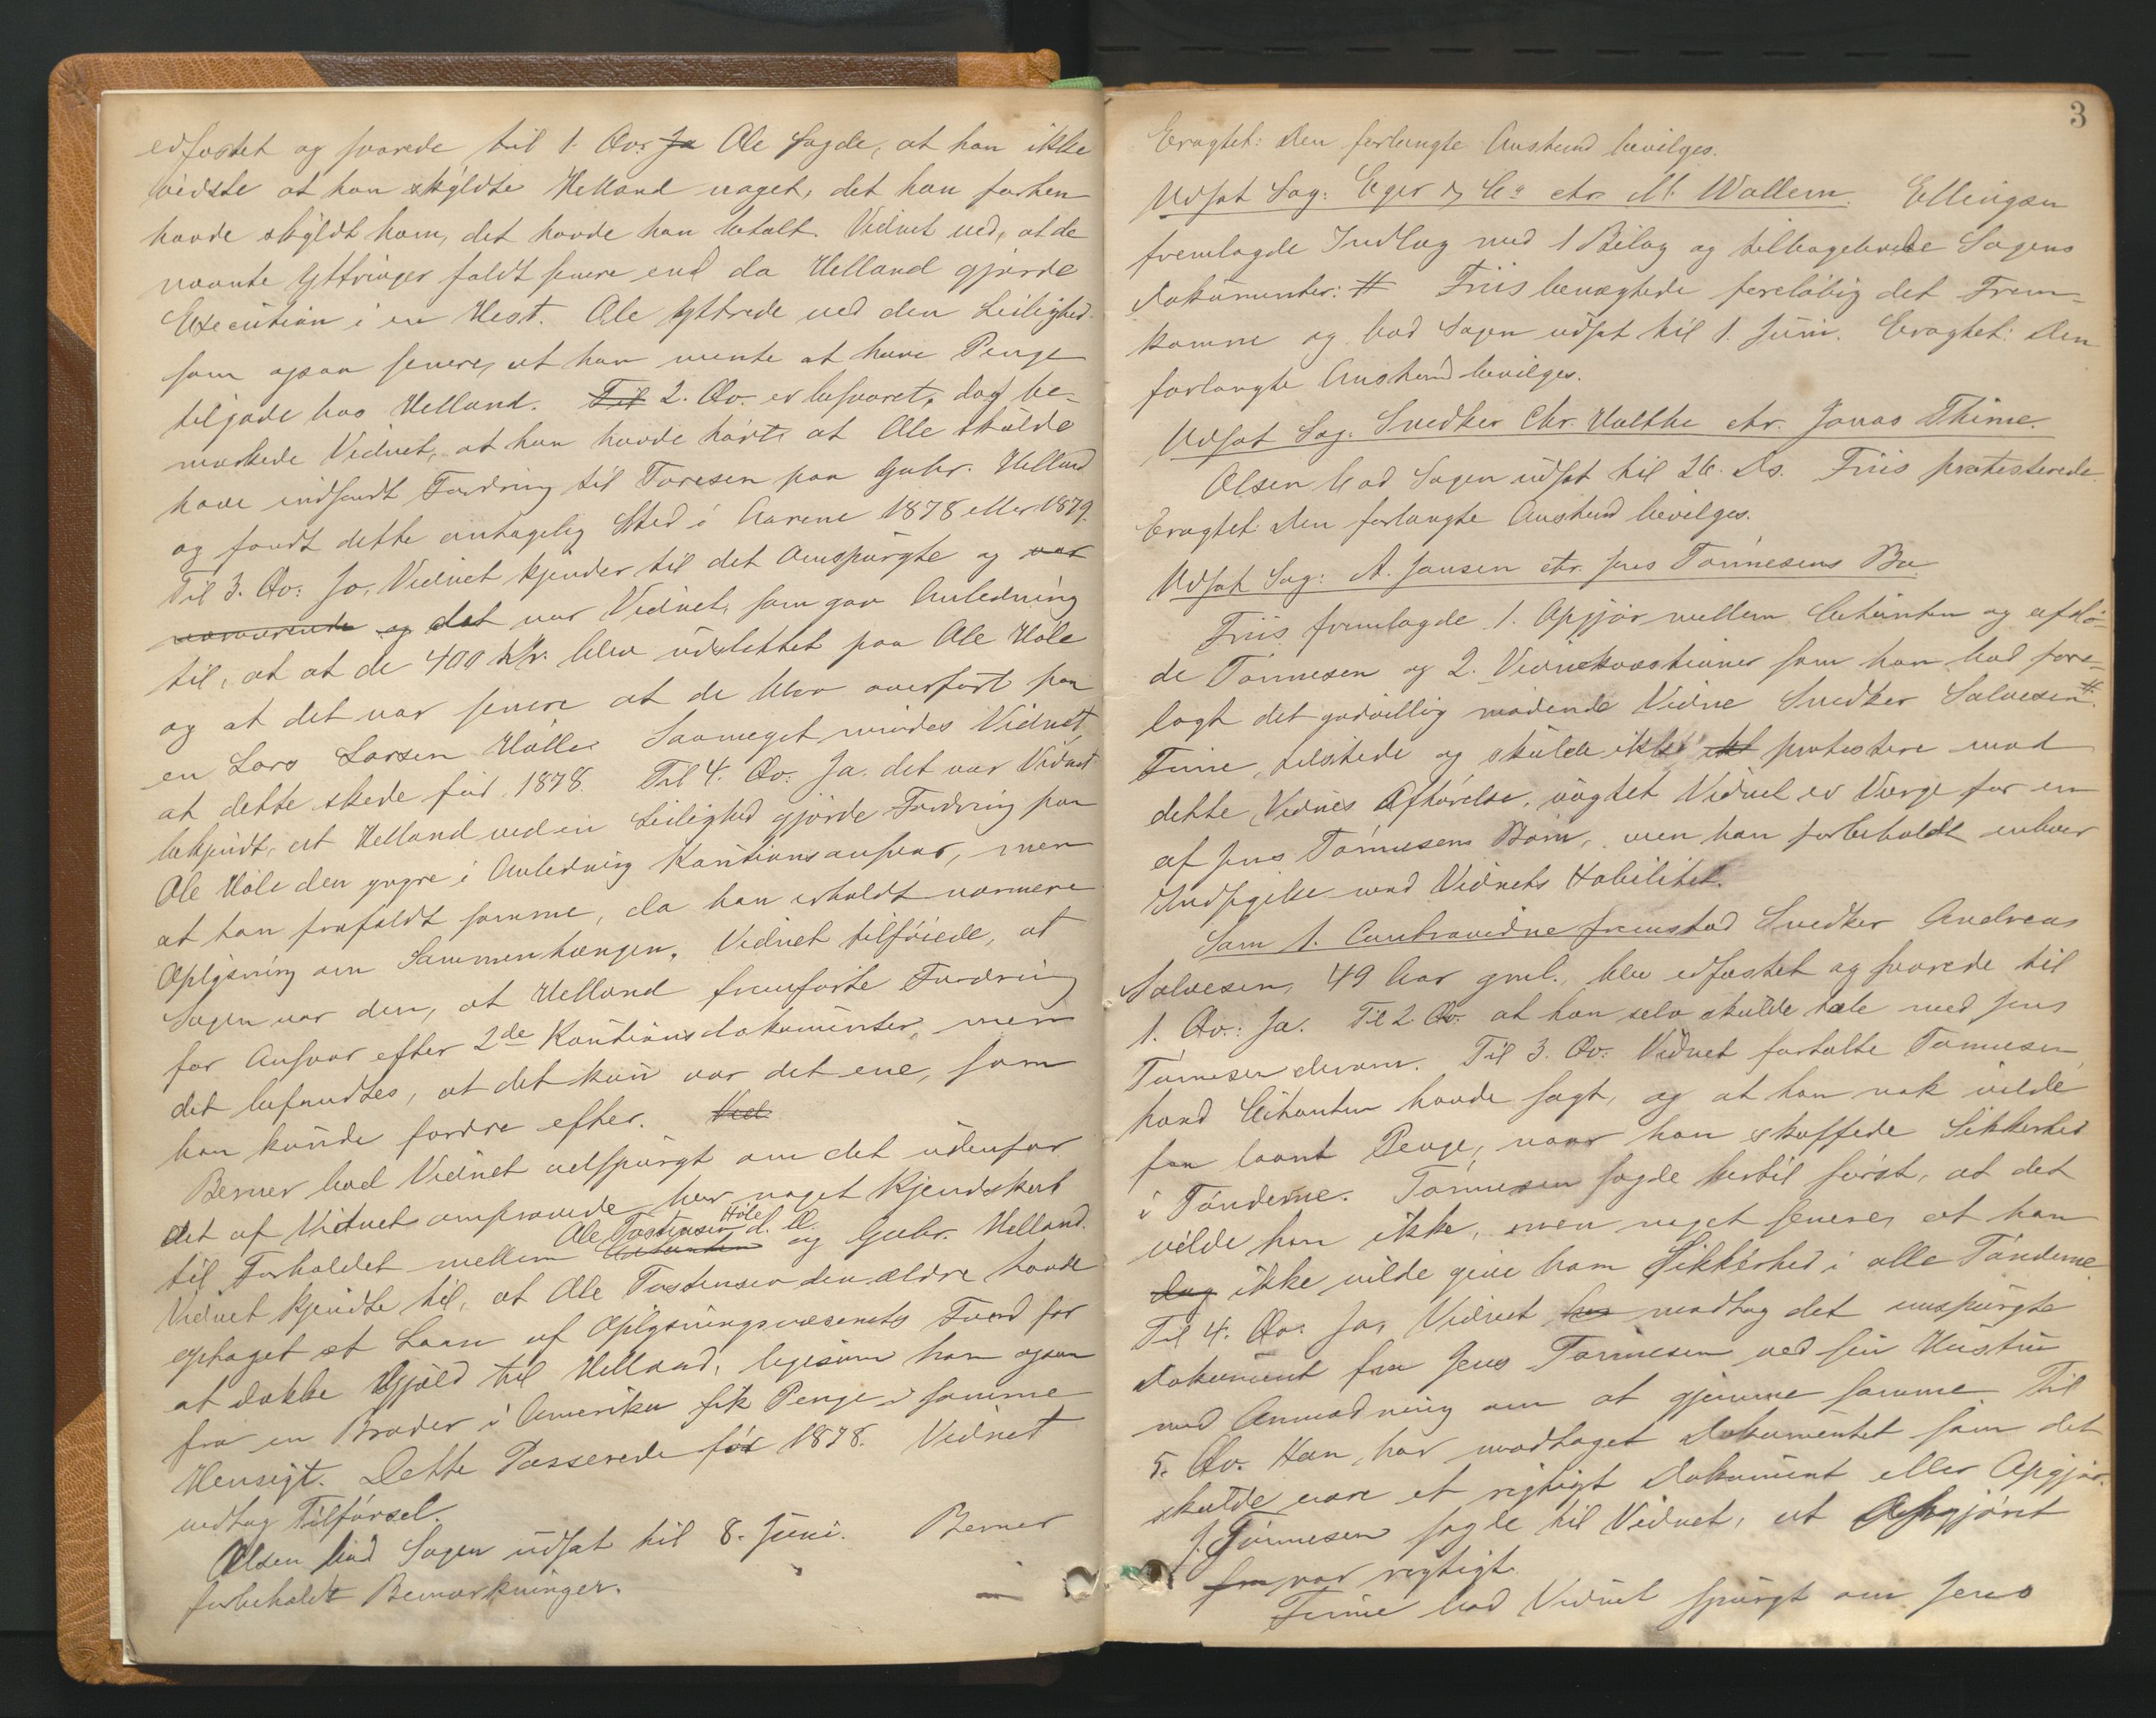 edfæstet og svarede til 1. Qv: Ja Ole sagde, at han ikke
vidste at han skyldte Helland noget, det han forhen
havde skyldt ham, det havde han betalt. Vidnet ved, at de
nævnte Yttringer faldt senere end da Helland gjorde
Execution i en Hest. Ole yttrede ved den Leilighed
som ogsaa senere, at han mente at have Penge
tilgode hos Helland. Til 2. Qv. er besvaret, dog be-
mærkede Vidnet, at han havde hørt, at Ole skulde
have indsendt Fordring til Toresen paa Gabr. Helland
og fandt dette antagelig Sted i Aarene 1878 eller 1879.
Til 3. Qv: Ja, Vidnet kjender til det Omspurgte og var
nærværende og det var Vidnet, som gav Anledning
til, at at de 400 Kr. blev udslettet paa Ole Høle
og at det var senere at de blev overført paa
en Lars Larsen Hølle. Saameget mindes Vidnet,
at dette skede før 1878. Til 4. Qv: Ja. det var Vidnet
bekjendt, at Helland ved en Leilighed gjorde Fordring paa
Ole Høle den yngre i Anledning Kautionsansvar, men
at han frafaldt samme, da han erholdt nærmere
Oplysning om Sammenhængen. Vidnet tilføiede, at
Sagen var den, at Helland fremførte Fordring
for Ansvar efter 2de Kautionsdokumenter, men
det befandtes, at det kun var det ene, som
han kunde fordre efter. Ved
Berner bad Vidnet udspurgt om det udenfor
det af Vidnet omprovede har noget Kjendskab
til Forholdet mellem Citanten Ole Tostensen Høle d. Æ. og Gabr. Helland.
Vidnet kjendte til, at Ole Tostensen den ældre havde
optaget et Laan af Oplysningsvæsenets Fond for
at dække Gjæld til Helland, ligesom han ogsaa
fra en Broder i Amerika fik Penge i samme
Hensigt. Dette Passerede før 1878. Vidnet
vedtog Tilførsel.
Olsen bad Sagen udsat til 8. Juni. Berner
forbeholdt Bemærkninger.
3
Eragtet: Den forlangte Anstand bevilges.
Udsat Sag: Eger & Co ctr. M. Wallem. Ellingsen
fremlagde Indlæg med 1 Bilag og tilbageleverede Sagens
Dokumenter: # Friis benægtede foreløbig det Frem-
komne og bad Sagen udsat til 1. Juni. Eragtet: Den
forlangte Anstand bevilges.
Udsat Sag. Snedker Chr. Valthe ctr. Jonas Thime.
Olsen bad Sagen udsat til 26. Ds. Friis protesterede.
Eragtet: Den forlangte Anstand bevilges.
Udsat Sag: A. Jansen ctr. Jens Tønnesens Bo
Friis fremlagde 1. Opgjør mellem Citanten og afdø-
de Tønnesen og 2. Vidnekvæstioner som han bad fore-
lagt det godvillig mødende Vidne Snedker Salvesen #.
Time, tilstede og skulde ikke ikke protestere mod
dette Vidnes Afhørelse, uagtet Vidnet er Værge for en
af Jens Tønnesens Børn, men han forbeholdt enhver
Indsigelse mod Vidnets Habilitet.
Som 1. Contravidne fremstod Snedker Andreas
Salvesen, 49 Aar gml., blev edfæstet og svarede til
1. Qv.: Ja. Til 2. Qv. at han selv skulde tale med Jens
Tønnesen derom. Til 3. Qv: Vidnet fortalte Tønnesen
hvad Citanten havde sagt, og at han nok vilde
faa laant Penge, naar han skaffede Sikkerhed
i Tønderne. Tønnesen sagde hertil først, at det
vilde han ikke, men noget senere, at han
dog ikke vilde give ham Sikkerhed i alle Tønderne.
Til 4. Qv. Ja, Vidnet har modtog det omspurgte
Dokument fra Jens Tønnesen ved sin Hustru
med Anmodning om at gjemme samme. Til
5. Qv. Han, har modtaget Dokumentet som det
skulde være et rigtigt Dokument eller Opgjør.
J. Tønnesen sagde til Vidnet, at Opgjøret
fra var rigtigt.
Time bad Vidnet spurgt om Jens